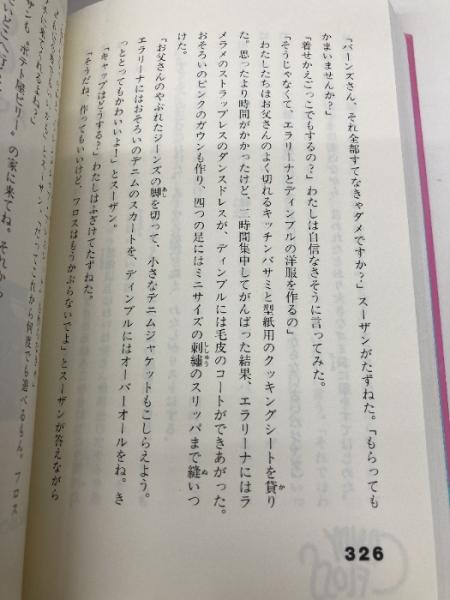 「バーンズさん、それ全部すてなきゃダメですか?」スーザンがたずねた。「もらっても
かまいませんか?」
「着せかえごっこでもするの?」わたしは自信なさそうに言ってみた。
「そうじゃなくて、エラリーナとディンプルの洋服を作るの」
わたしたちはお父さんのよく切れるキッチンバサミと型紙用のクッキングシートを貸り
た。思ったより時間がかかったけど、二時間集中してがんばった結果、エラリーナにはラ
メラメのストラップレスのダンスドレスが、ディンプルには毛皮のコートができあがった。
おそろいのピンクのガウンも作り、四つの足にはミニサイズの刺繡のスリッパまで縫いつ
けた。
「お父さんのやぶれたジーンズの脚を切って、小さなデニムジャケットもこしらえよう。
エラリーナにはおそろいのデニムのスカートを、ディンプルにはオーバーオールをね。き
っととってもかわいいよ!」とスーザン。
「キャップはどうする?」わたしはふざけてたずねた。
「そうだね、作ってもいいけど、フロスはもうかぶらないでよ」とスーザンが答えながら
326